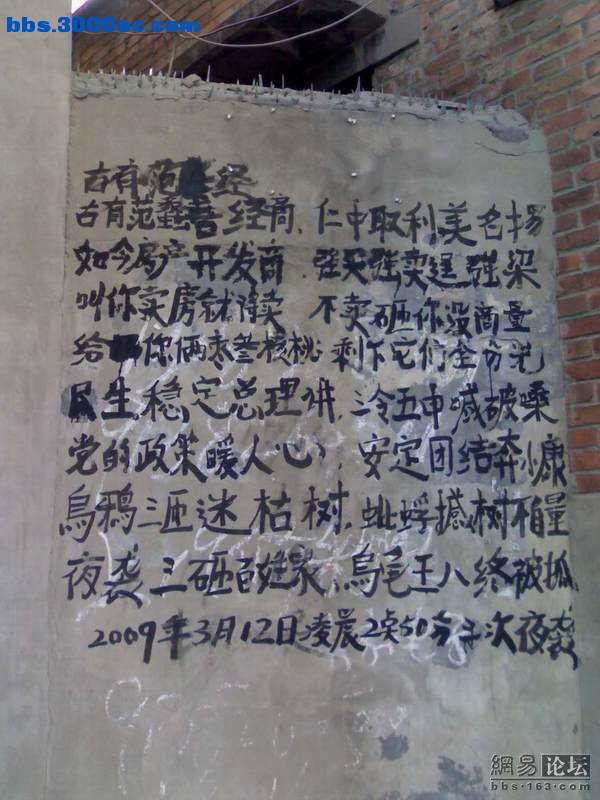 bbs.3000sc.com
古有范 经
古有范蠡善经商、仁中取利美名扬
如今房产开发商 强买强卖逞强梁
叫你卖房就得卖 不卖砸你没商量
给 你俩枣叁核桃 剩下它们全分光
民生稳定总理讲、三令五申喊破嗓
党的政策暖人心、安定团结奔小康
烏鸦三匝迷枯树、蚍蜉撼树不自量
夜袭三砸百姓家、烏龟王八终被抓
2009年3月12日凌晨2点50分三次夜袭
網易论坛
bbs.163.com